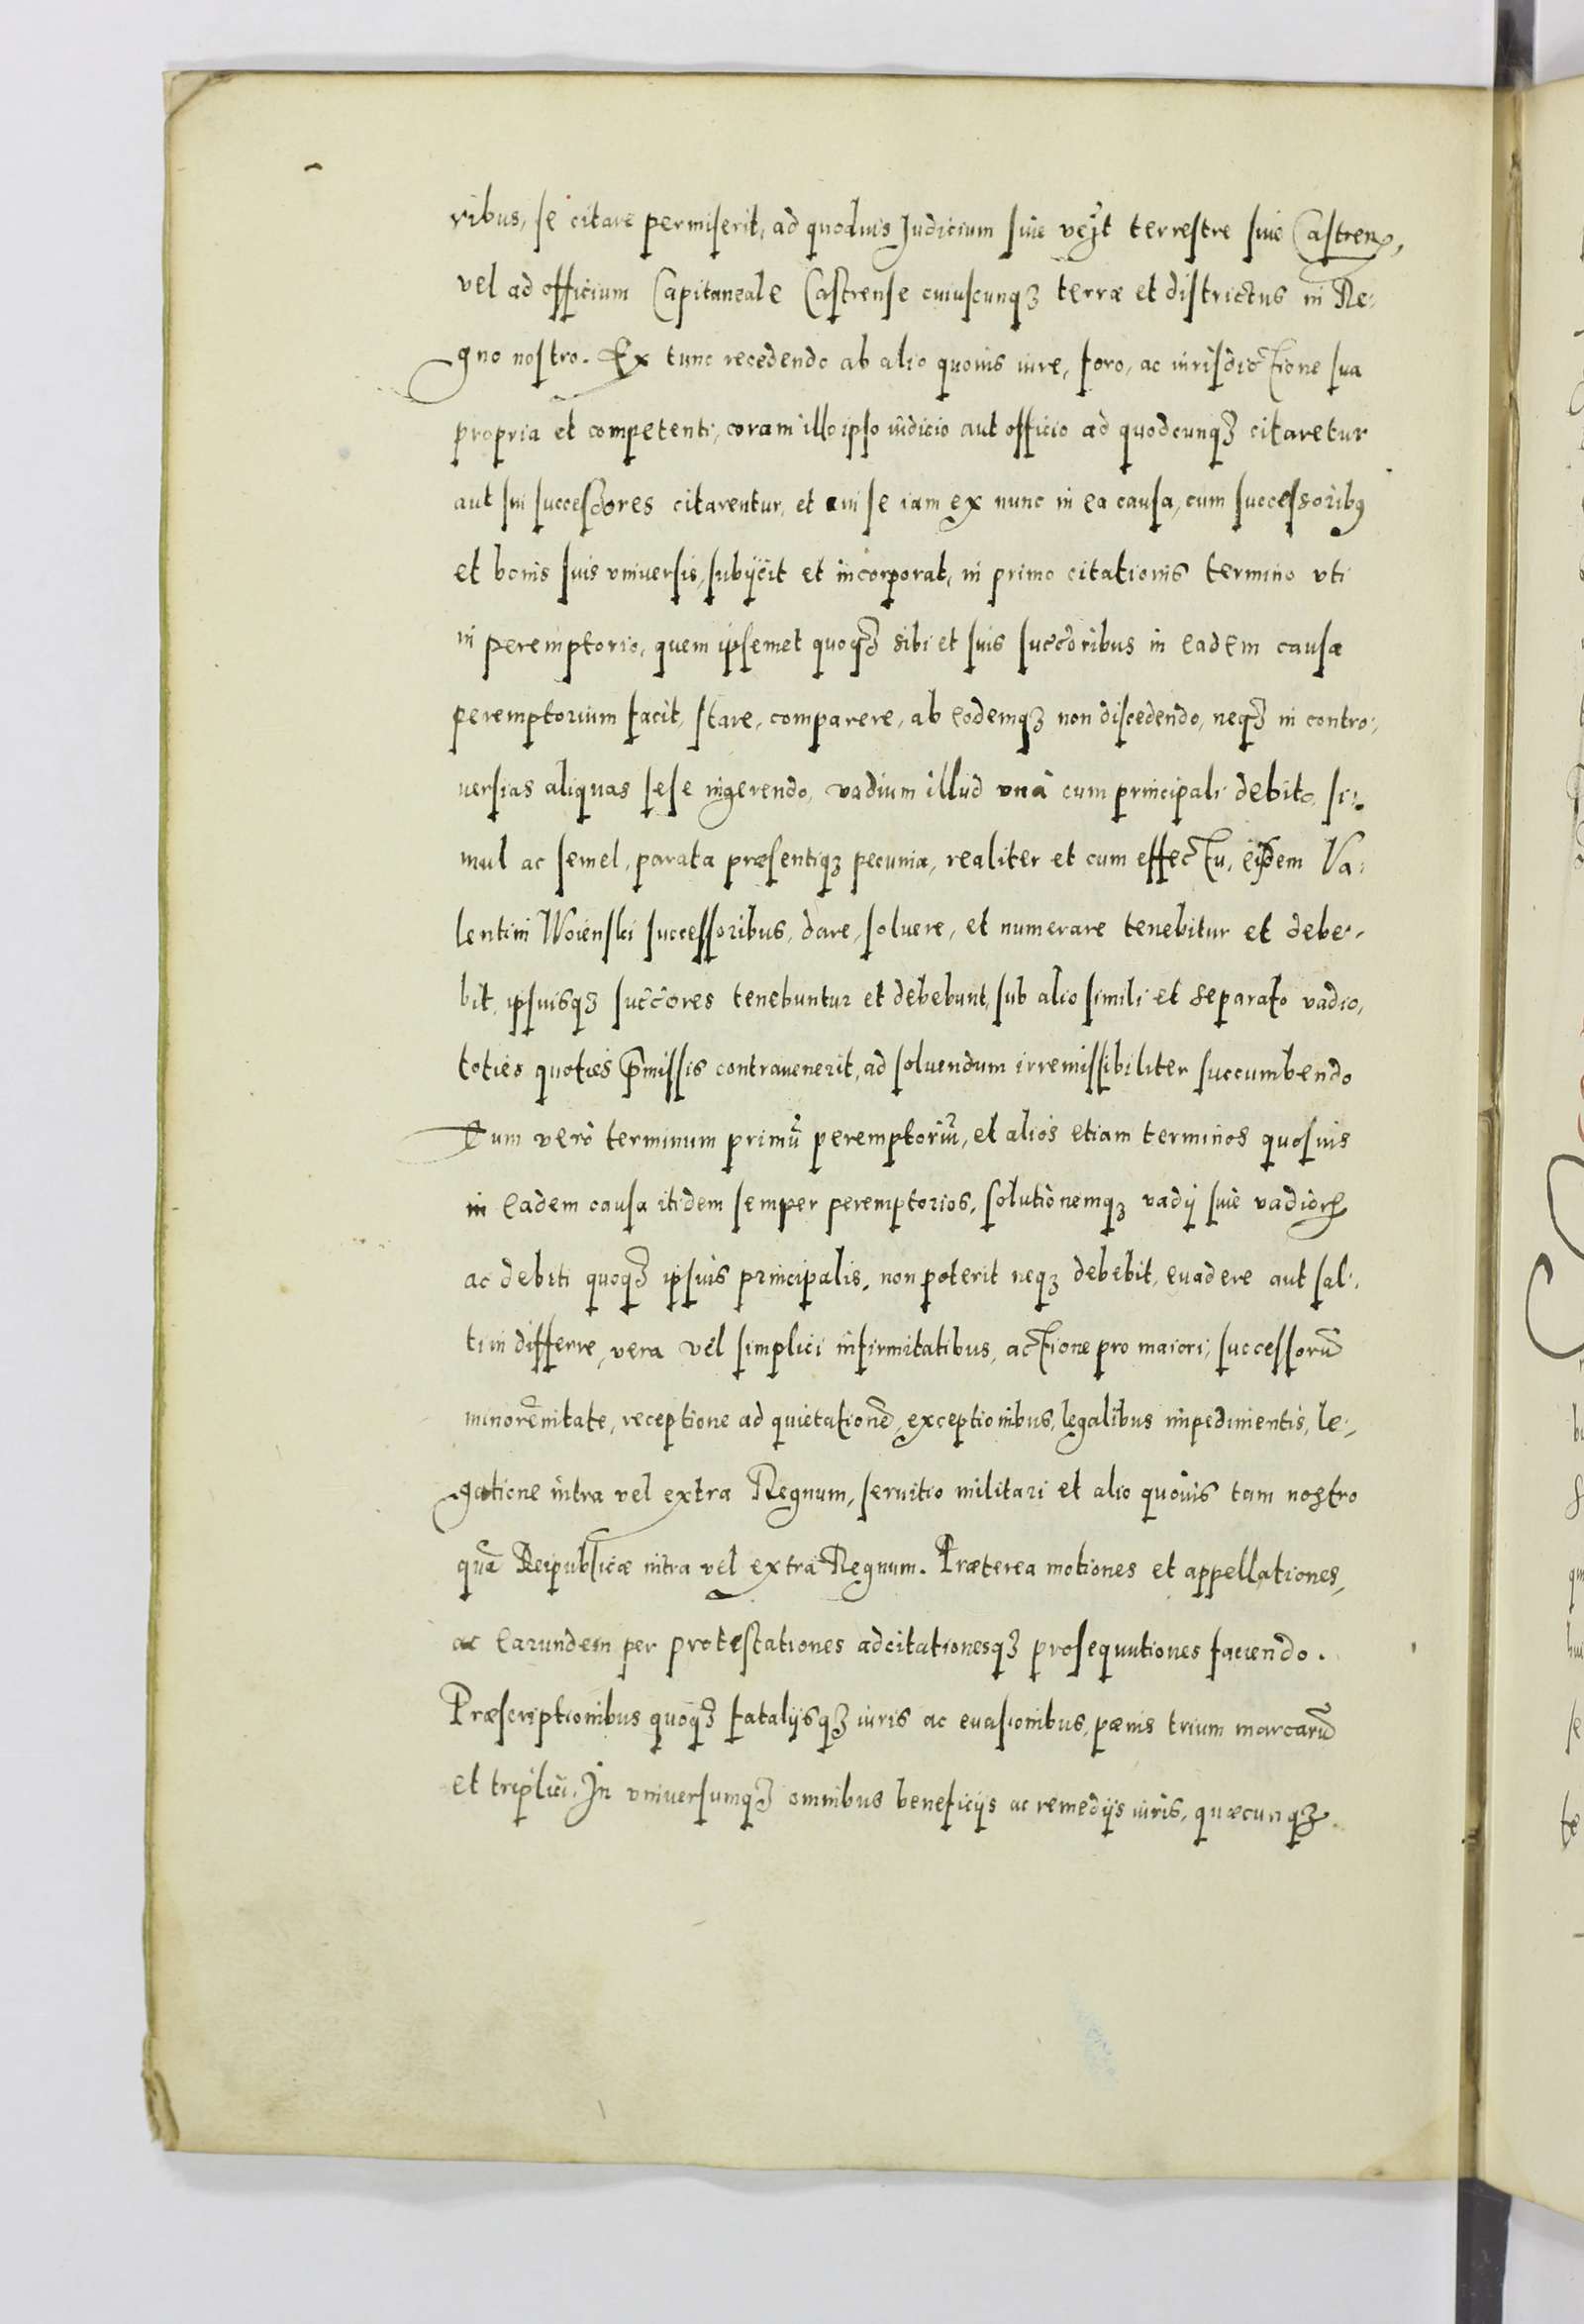 ribus, se citare permiserit, ad quoduis Judicium siue terrestre siue Castren,
vel ad officium Capitaneale Castrense cuiuscunqꝫ terræ et districtus in Re-
gno nostro. Ex tunc recedendo ab alio quouis iure, foro, ac iurisdictione sua
propria et competenti, coram illo ipso iudicio aut officio ad quodcunqꝫ citaretur
aut sui successores citarentur, et cui se iam ex nunc in ea causa, cum successoribꝰ
et bonis suis vniuersis, subijcit et incorporat, in primo citationis termino vti
in peremptorio, quem ipsemet quoqꝫ sibi et suis succõribus in eadem causa
peremptorium facit, stare, comparere, ab eodemqꝫ non discedendo, neqꝫ in contro-
uersias aliquas sese ingerendo, vadium illud vnâ cum principali debito, si-
mul ac semel, parata præsentiqꝫ pecunia, realiter et cum effectu, eisdem Va-
lentini Woienski successoribus, dare, soluere, et numerare tenebitur et debe-
bit, ipsiusqꝫ succõres tenebuntur et debebunt, sub alio simili et separato vadio,
toties quoties p̃missis contrauenerit, ad soluendum irremissibiliter succumbendo
Eum verò terminum primũ peremptoriũ, et alios etiam terminos quosuis
in eadem causa itidem semper peremptorios, solutionemqꝫ vadij siue vadioꝝ
ac debiti quoqꝫ ipsius principalis, non poterit neqꝫ debebit, euadere aut sal-
tim differre, vera vel simplici infirmitatibus, actione pro maiori, successorũ
minorẽnitate, receptione ad quietationẽ, exceptionibus, legalibus impedimentis, le-
gatione intra vel extra Regnum, seruitio militari et alio quouis tam nostro
quã Reipublicæ intra vel extra Regnum. Præterea motiones et appellationes,
ac earundem per protestationes adcitationesqꝫ prosequutiones faciendo.
Præscriptionibus quoqꝫ fatalijsqꝫ iuris ac euasionibus, pœnis trium marcarũ
et triplici. In vniuersumqꝫ omnibus beneficijs ac remedijs iuris, quæcunqꝫ